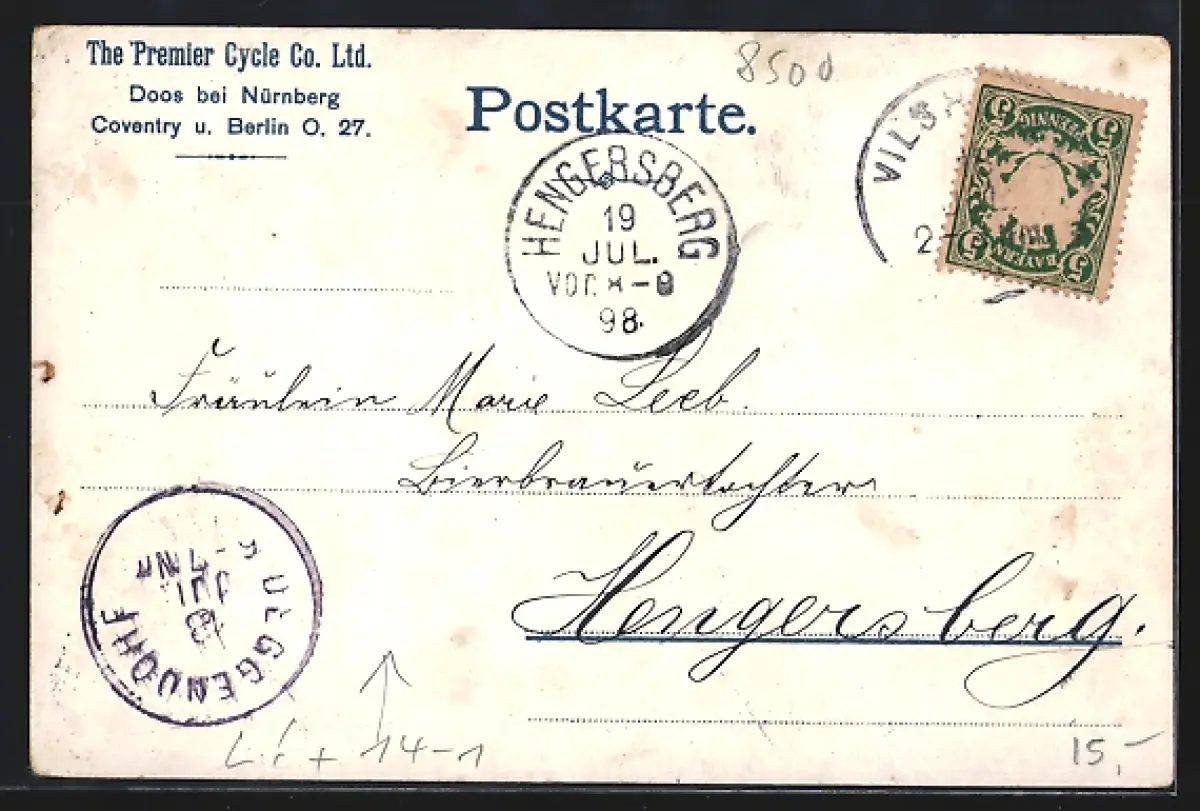 The Premier Cycle Co. Ltd.
Doos bei Nürnberg
Coventry u. Berlin O. 27.
Postkarte.
8500
HENGERSBERG
19
JUL.
VOR. 8-9
98.
VILS
2-
5 PFENNIG 5
5 BAYERN 5
Fräulein Marie Leeb.
Bierbrauerstochter
Hengersberg.
DEGGENDORF
JUL
14-1
15,-